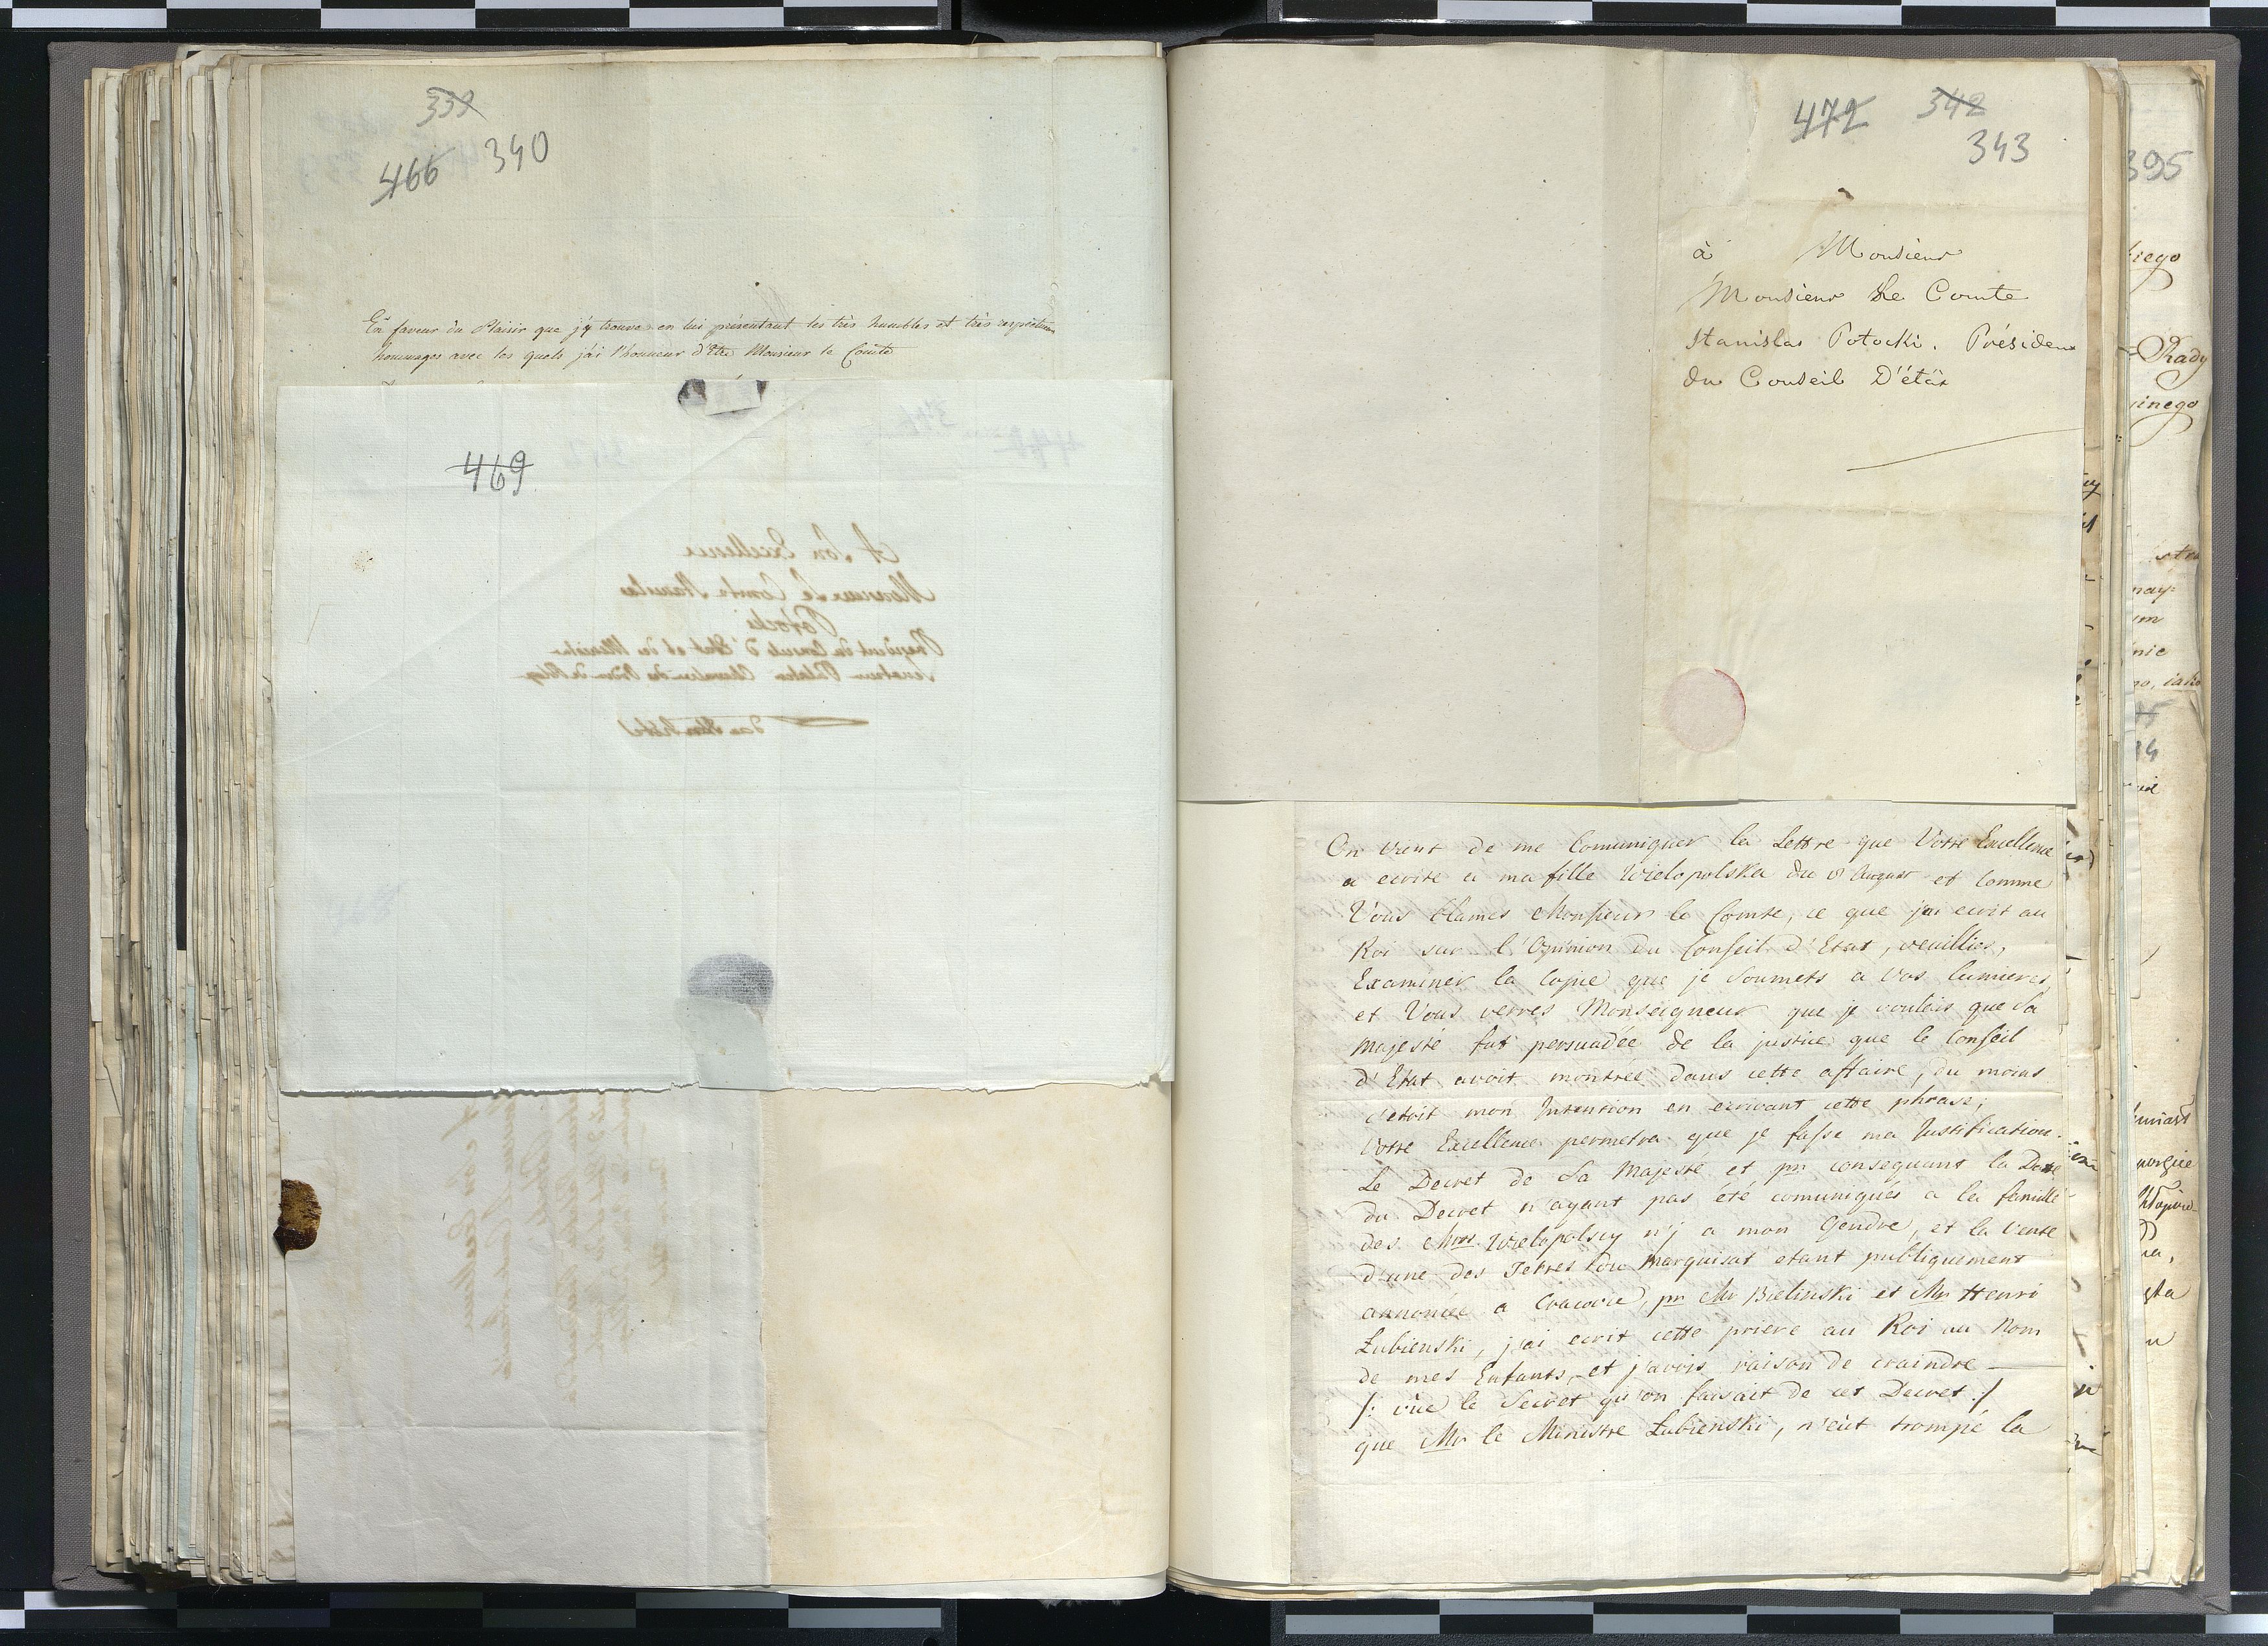 339
466 340
En faveur du Plaisir que j'y trouve en lui présentant les très humbles et très respectueux
hommages avec les quels j'ai l'honneur d'Etre Monsieur le Comte
469
A Son Excellence
Monsieur Le Comte Stanislas
Potocki
President du Conseil d'Etat et des Ministres
Senateur Palatin Chevalier des
472 342
343
à Monsieur
Monsieur Le Comte
Stanislas Potocki. Présiden
du Conseil D'état
On vient de me Comuniquer la Lettre que Votre Excellence
a ecrite a ma fille Wielopolska du 8 August et Comme
Vous blames Monsieur le Comte, ce que jai ecrit au
Roi sur l'Opinion du Conseil d'Etat, veuillies,
Examiner la Copie que je Soumets a Vos lumieres,
et Vous verres Monseigneur que je voulois que Sa
Majesté fut persuadée de la justice que le Conseil
d'Etat avoit montrée dans cette affaire, du moins
c'etoit mon Intention en ecrivant cette phrase;
Votre Excellence permetra que je fasse ma Justification.
Le Decret de Sa Majesté et pr consequant la Datte
du Decret n'ayant pas été comuniqués a la famille
des Mrs Wielopolscy n'j a mon Gendre, et la vente
d'une des Terres du Marquisat etant publiquement
annoncée a Cracovie, pr Mr Bielinski et Mr Henri
Lubienski, j'ai ecrit cette priere au Roi au Nom
de mes Enfants, et j'avois raison de craindre
/: vûe le Secret qu'on faisait de cet Decret :/
que Mr le Ministre Lubienski, n'eût trompé la
395